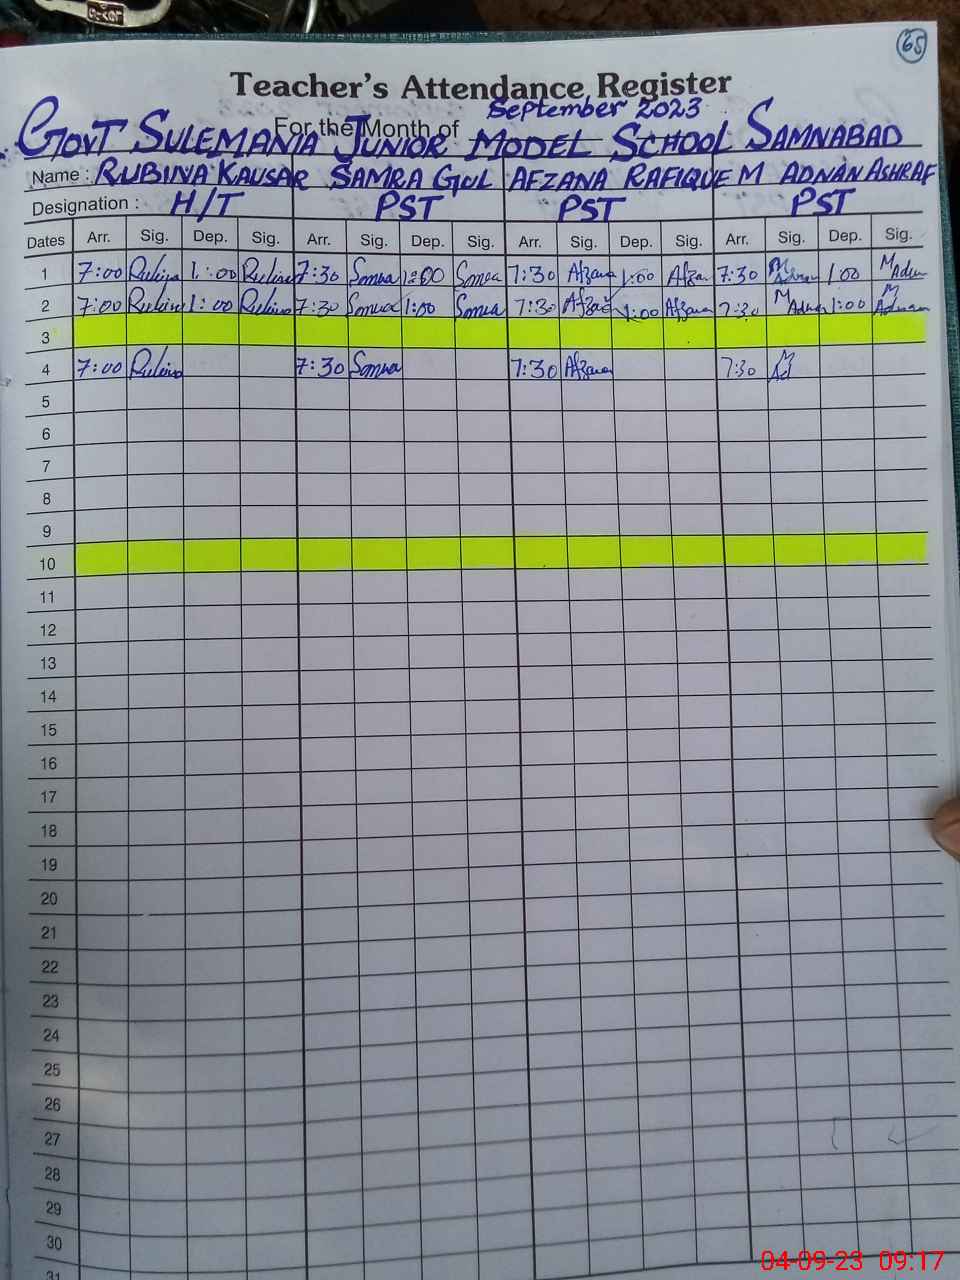 65
Teacher's Attendance Register
September 2023
For the Month of
GOVT SULEMANIA JUNIOR MODEL SCHOOL SAMNABAD
Name : RUBINA KAUSAR SAMRA GUL AFZANA RAFIQUE M ADNAN ASHRAF
Designation : H/T PST PST PST
Dates Arr. Sig. Dep. Sig. Arr. Sig. Dep. Sig. Arr. Sig. Dep. Sig. Arr. Sig. Dep. Sig.
1 7:00 Rubina 1:00 Rubina 7:30 Samra 1:00 Samra 7:30 Afzana 1:00 Afzana 7:30 M Adnan 1:00 M Adnan
2 7:00 Rubina 1:00 Rubina 7:30 Samra 1:00 Samra 7:30 Afzana 1:00 Afzana 7:30 M Adnan 1:00 M Adnan
3
4 7:00 Rubina 7:30 Samra 7:30 Afzana 7:30 M
5
6
7
8
9
10
11
12
13
14
15
16
17
18
19
20
21
22
23
24
25
26
27
28
29
30
31
04-09-23 09:17